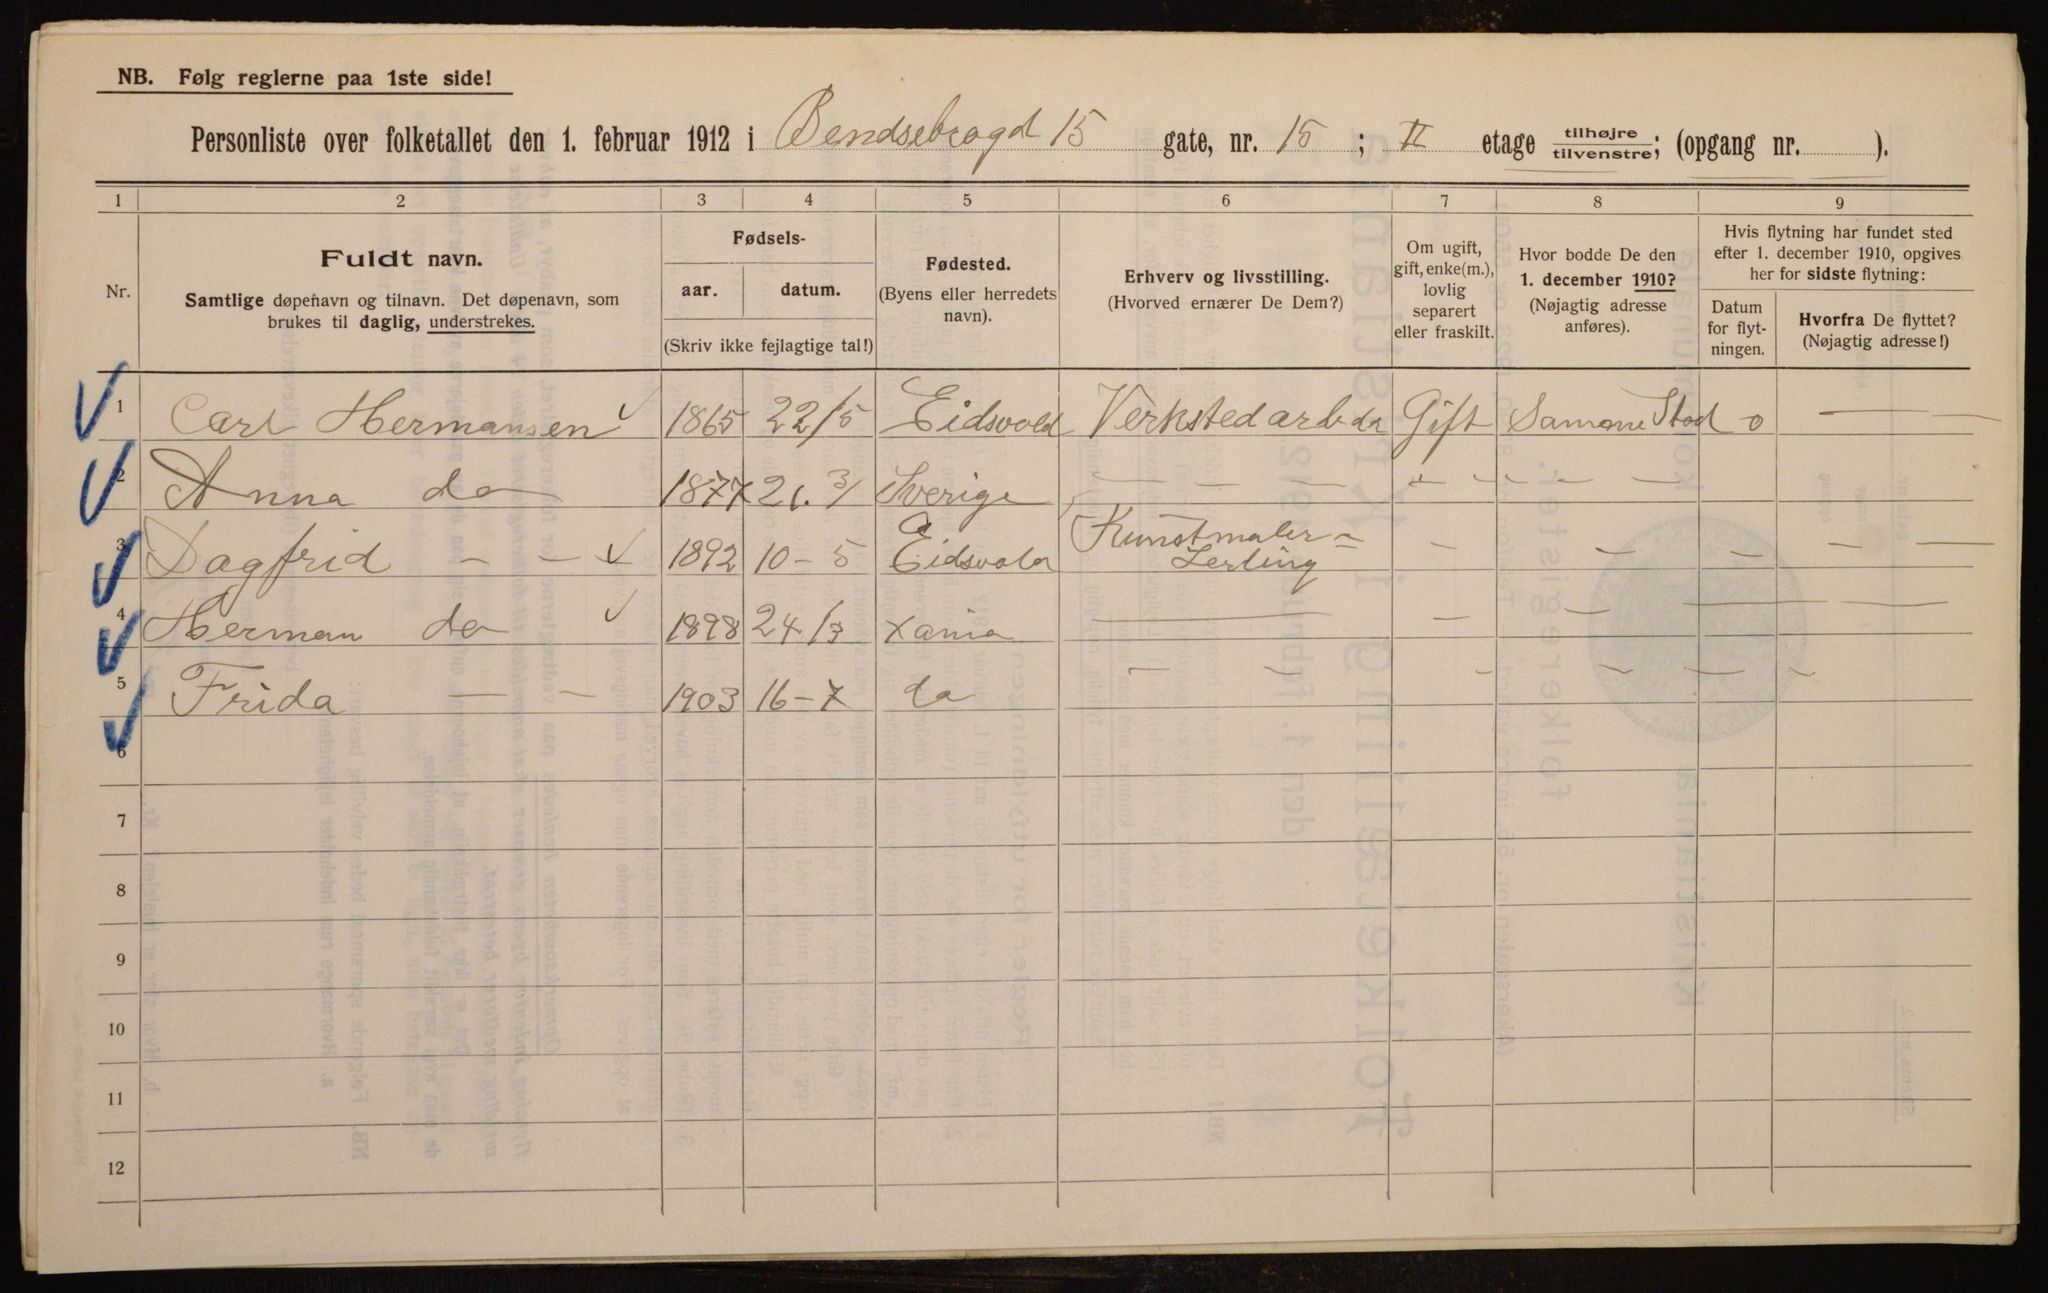 NB. Følg reglerne paa 1ste side!
Personliste over folketallet den 1. februar 1912 i Bendsebragd 15 gate, nr. 15 ; II etage tilhøjre tilvenstre; (opgang nr. ).
1 2 3 4 5 6 7 8 9
Nr.
Fuldt navn.
Samtlige døpenavn og tilnavn. Det døpenavn, som
brukes til daglig, understrekes.
Fødsels-
aar. datum.
(Skriv ikke fejlagtige tal!)
Fødested.
(Byens eller herredets
navn).
Erhverv og livsstilling.
(Hvorved ernærer De Dem?)
Om ugift,
gift, enke(m.),
lovlig
separert
eller fraskilt.
Hvor bodde De den
1. december 1910?
(Nøjagtig adresse
anføres).
Hvis flytning har fundet sted
efter 1. december 1910, opgives
her for sidste flytning:
Datum
for flyt-
ningen.
Hvorfra De flyttet?
(Nøjagtig adresse!)
1 Carl Hermansen 1865 22/5 Eidsvold Verkstedarbeder Gift Samme Stad o — —
2 Anna do 1877 21. 3/ Sverige — — — — — — —
3 Dagfrid — — 1892 10-5 Eidsvold Kunstmaler-
Lerling — — — — —
4 Herman do 1898 24/3 Xania — — — —
5 Frida — — 1903 16-7 do — — — — — —
6
7
8
9
10
11
12